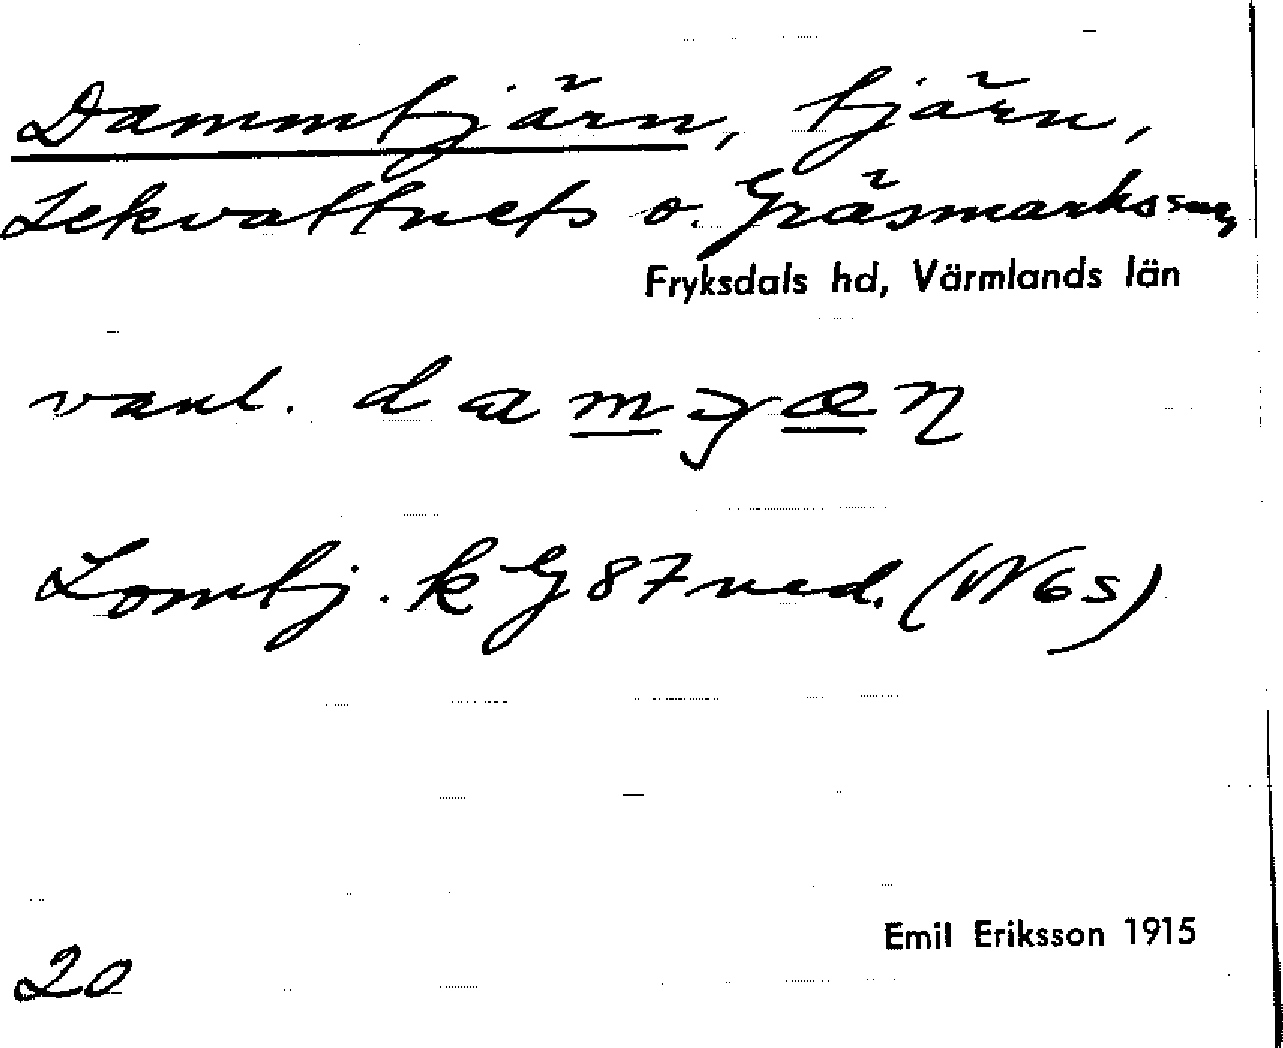 Dammtjärn, tjärn,
Lekvattnets o. Gräsmarks snr,
Fryksdals hd, Värmlands län
vanl.
Lomtj. k G 87 ned. (N 6 s)
Emil Eriksson 1915
20